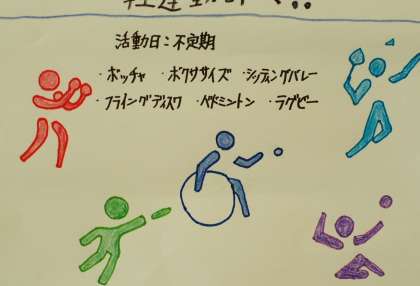 運動
活動日:不定期
・ボッチャ ・ボクササイズ ・シッティングバレー
・フライングディスク ・バドミントン ・ラグビー